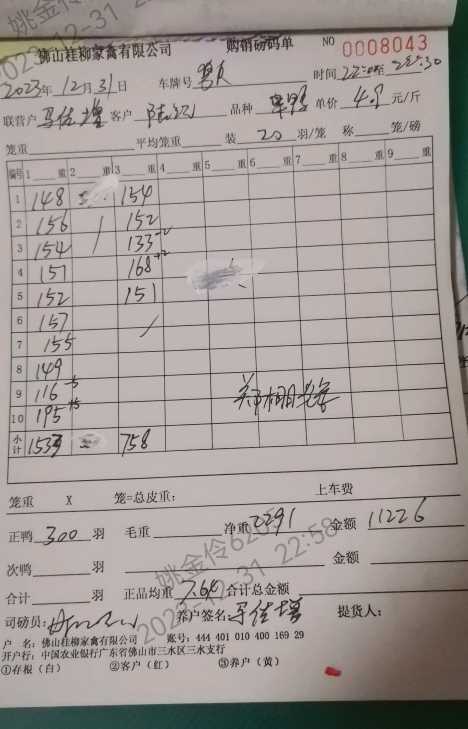 佛山桂柳家禽有限公司 购销磅码单 NO 0008043
2023年12月31日 车牌号 时间
联营户 客户 品种 单价 4.9 元/斤
笼重 平均笼重 装 20 羽/笼 称 笼/磅
编号 1 重 2 重 3 重 4 重 5 重 6 重 7 重 8 重 9 重
1 148 154
2 156 152
3 154 133 -2
4 151 168 +2
5 152 151
6 157
7 155
8 149
9 116 -5
10 195 +5
小计 1533 758
笼重 X 笼=总皮重: 上车费
正鸭 300 羽 毛重 净重 2291 金额 11226
次鸭 羽 金额
合计 羽 正品均重 7.64 合计总金额
司磅员: 养户签名: 提货人:
户 名: 佛山桂柳家禽有限公司 账号: 444 401 010 400 169 29
开户行: 中国农业银行广东省佛山市三水区三水支行
①存根(白) ②客户(红) ③养户(黄)
2023-12-31 22:58